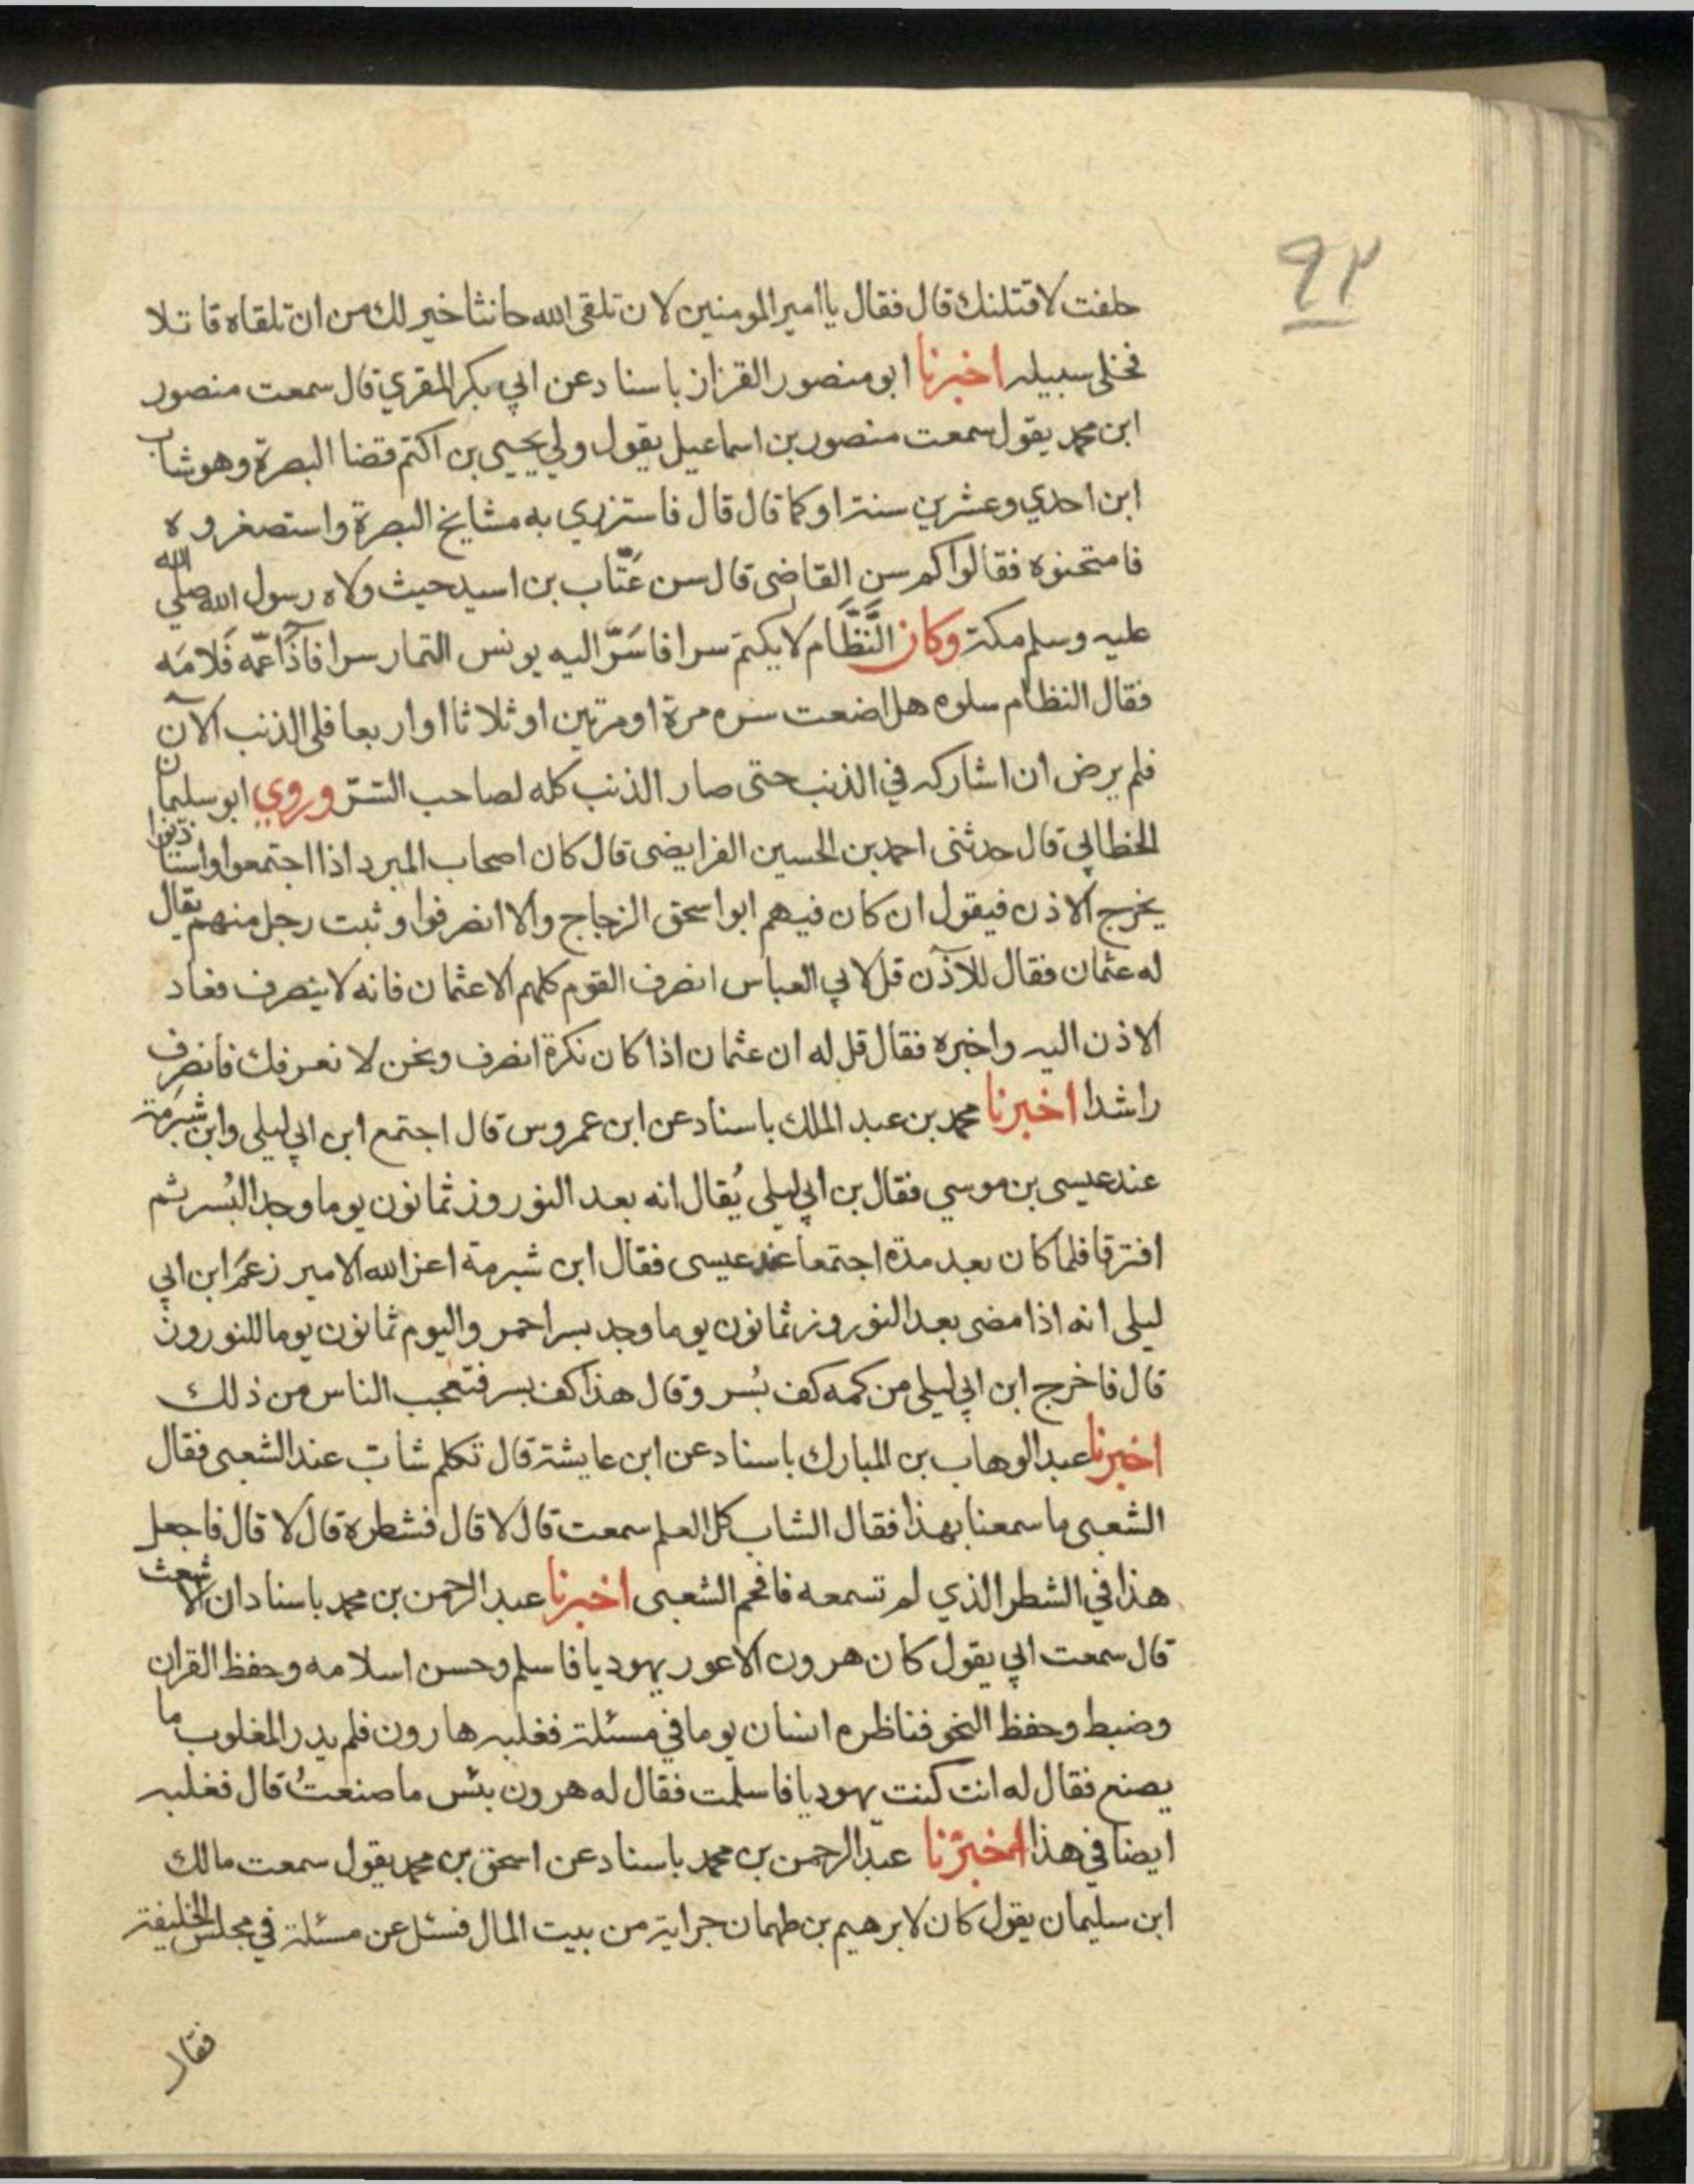 ٩٢
حلفت لاقتلنك قال فقال يا امير المومنين لان تلقى الله حانثا خير لك من ان تلقاه قاتلا
فخلى سبيله اخبرنا ابو منصور القزاز باسناد عن ابي بكر المقري قال سمعت منصور
ابن محمد يقول سمعت منصور بن اسماعيل يقول ولي يحيى بن اكتم قضا البصرة وهو شاب
ابن احدي وعشرين سنة او كما قال قال فاستزري به مشايخ البصرة واستصغروه
فامتحنوه فقالوا كم سن القاضي قال سن عَتّاب بن اسيد حيث ولاه رسول الله صلي الله
عليه وسلم مكة وكان النَّظَّام لا يكتم سرا فاسَرّ اليه يونس التمار سرا فاذاعه فَلامَه
فقال النظام سلوه هل اضعت سره مرة او مرتين او ثلاثا او اربعا فلمن الذنب الآن
فلم يرض ان اشاركه في الذنب حتى صار الذنب كله لصاحب السّر وروي ابو سليمان
الخطابي قال حدثنى احمد بن الحسين الفرايضى قال كان اصحاب المبرد اذا اجتمعوا واستاذنوا
يخرج الاذن فيقول ان كان فيهم ابو اسحق الزجاج والا انصرفوا وثبت رجل منهم يقال
له عثمان فقال للآذن قل لابي العباس انصرف القوم كلهم الا عثمان فانه لا ينصرف فعاد
الاذن اليه واخبره فقال قل له ان عثمان اذا كان نكرة انصرف ونحن لا نعرفك فانصرف
راشدا اخبرنا محمد بن عبد الملك باسناد عن ابن عمروس قال اجتمع ابن ابي ليلى وابن شبرمة
عند عيسى بن موسي فقال بن ابي ليلى يُقال انه بعد النوروز ثمانون يوما وجد البُسر ثم
افترقا فلما كان بعد مدة اجتمعا عند عيسى فقال ابن شبرمة اعز الله الامير زعمَ ابن ابي
ليلى انه اذا مضى بعد النوروز ثمانون يوما وجد بسر احمر واليوم ثمانون يوما للنوروز
قال فاخرج ابن ابي ليلى من كمه كف بُسر وقال هذا كف بسر فتعجب الناس من ذلك
اخبرنا عبد الوهاب بن المبارك باسناد عن ابن عايشة قال تكلم شاب عند الشعبى فقال
الشعبى ما سمعنا بهذا فقال الشاب كل العلم سمعت قال لا قال فشطره قال لا قال فاجعل
هذا في الشطر الذي لم تسمعه فافحم الشعبى اخبرنا عبد الرحمن بن محمد باسناد ان الاشعث
قال سمعت ابي يقول كان هرون الاعور يهوديا فاسلم وحسن اسلامه وحفظ القران
وضبط وحفظ النحو فناظره انسان يوما في مسئلة فغلبه هارون فلم يدر المغلوب ما
يصنع فقال له انت كنت يهوديا فاسلمت فقال له هرون بئس ما صنعتُ قال فغلبه
ايضا في هذا اخبرنا عبد الرحمن بن محمد باسناد عن اسحق بن محمد يقول سمعت مالك
ابن سليمان يقول كان لابرهيم بن طهمان جراية من بيت المال فسئل عن مسئلة في مجلس الخليفة
فقال